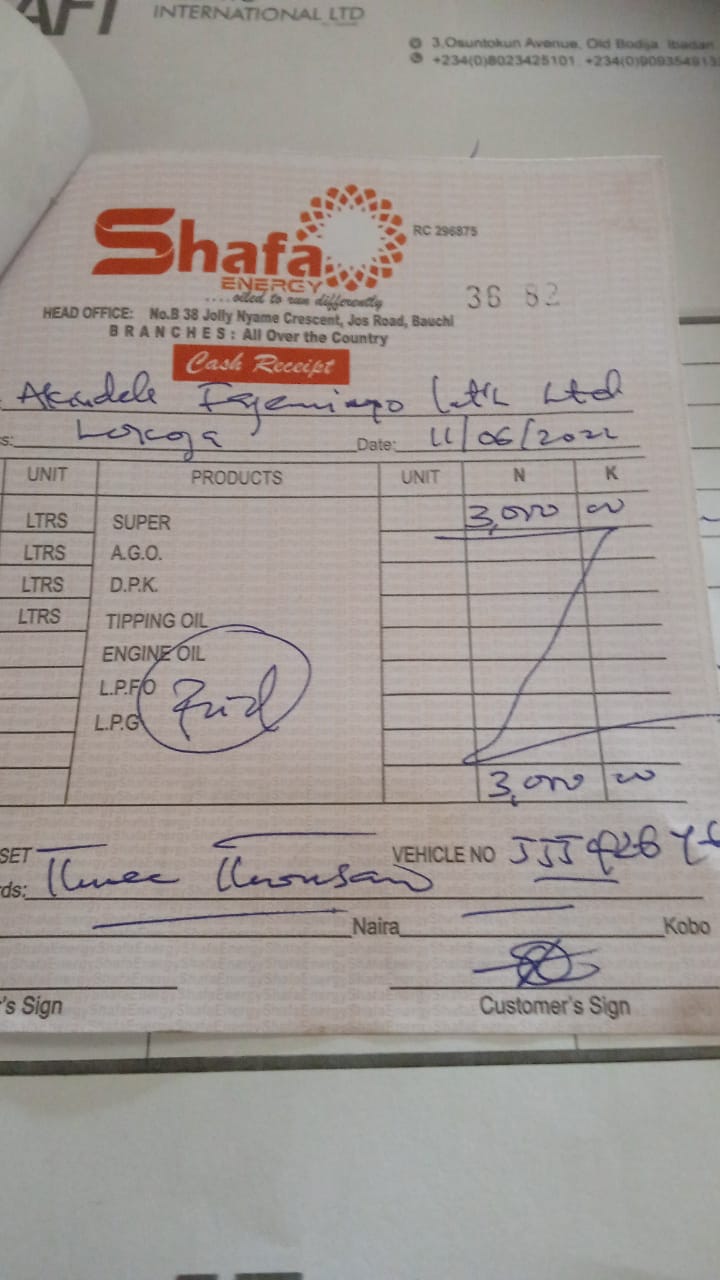 AFT INTERNATIONAL LTD
3, Osuntokun Avenue, Old Bodija, Ibadan
+234(0)8023425101, +234(0)909354913
Shafa
RC 296875
ENERGY
....oiled to run differently
36 82
HEAD OFFICE: No.B 38 Jolly Nyame Crescent, Jos Road, Bauchi
BRANCHES: All Over the Country
Cash Receipt
Akindele Fayemiyo Int'l Ltd
s: Lokoja Date: 11/06/2022
UNIT PRODUCTS UNIT N K
LTRS SUPER 3,000 00
LTRS A.G.O.
LTRS D.P.K.
LTRS TIPPING OIL
ENGINE OIL
L.P.F.O
Paid
L.P.G
3,000 00
SET VEHICLE NO JJJ 426 Y
ds: Three Thousand
Naira Kobo
's Sign Customer's Sign